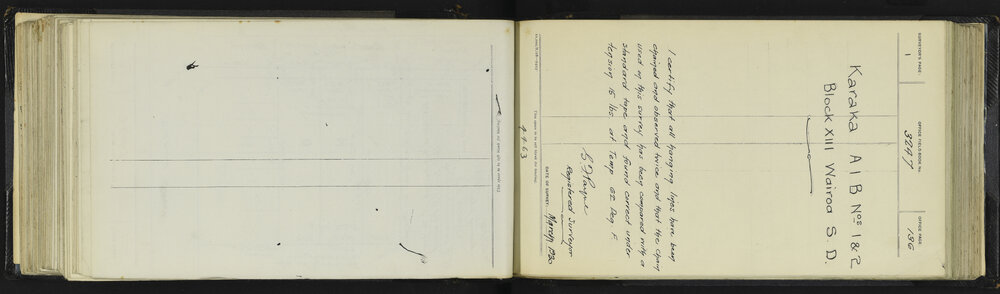 SURVEYOR'S PAGE:
1
OFFICE FIELD BOOK No.
3247
OFFICE PAGE:
136
Karaka A 1 B Nos 1 & 2
Block XIII Wairoa S. D.
I certify that all hanging lines have been
chained and observed twice and that the chain
used in this survey has been compared with a
standard tape and found correct under
tension 15 lbs. at Temp 62 Deg. F.
Registered Surveyor
DATE OF SURVEY: March 1930
9-9-63